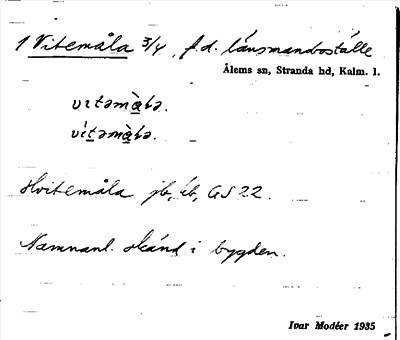 1 Vitemåla 3/4, f.d. länsmansboställe
Ålems sn, Stranda hd, Kalm. l.
vɩtəmà̲ɫa.
vɩ́t̲əmà̲ɫa.
Hvitemåla jb, äb, GS 22.
Namnanl. okänd i bygden.
Ivar Modéer 1935